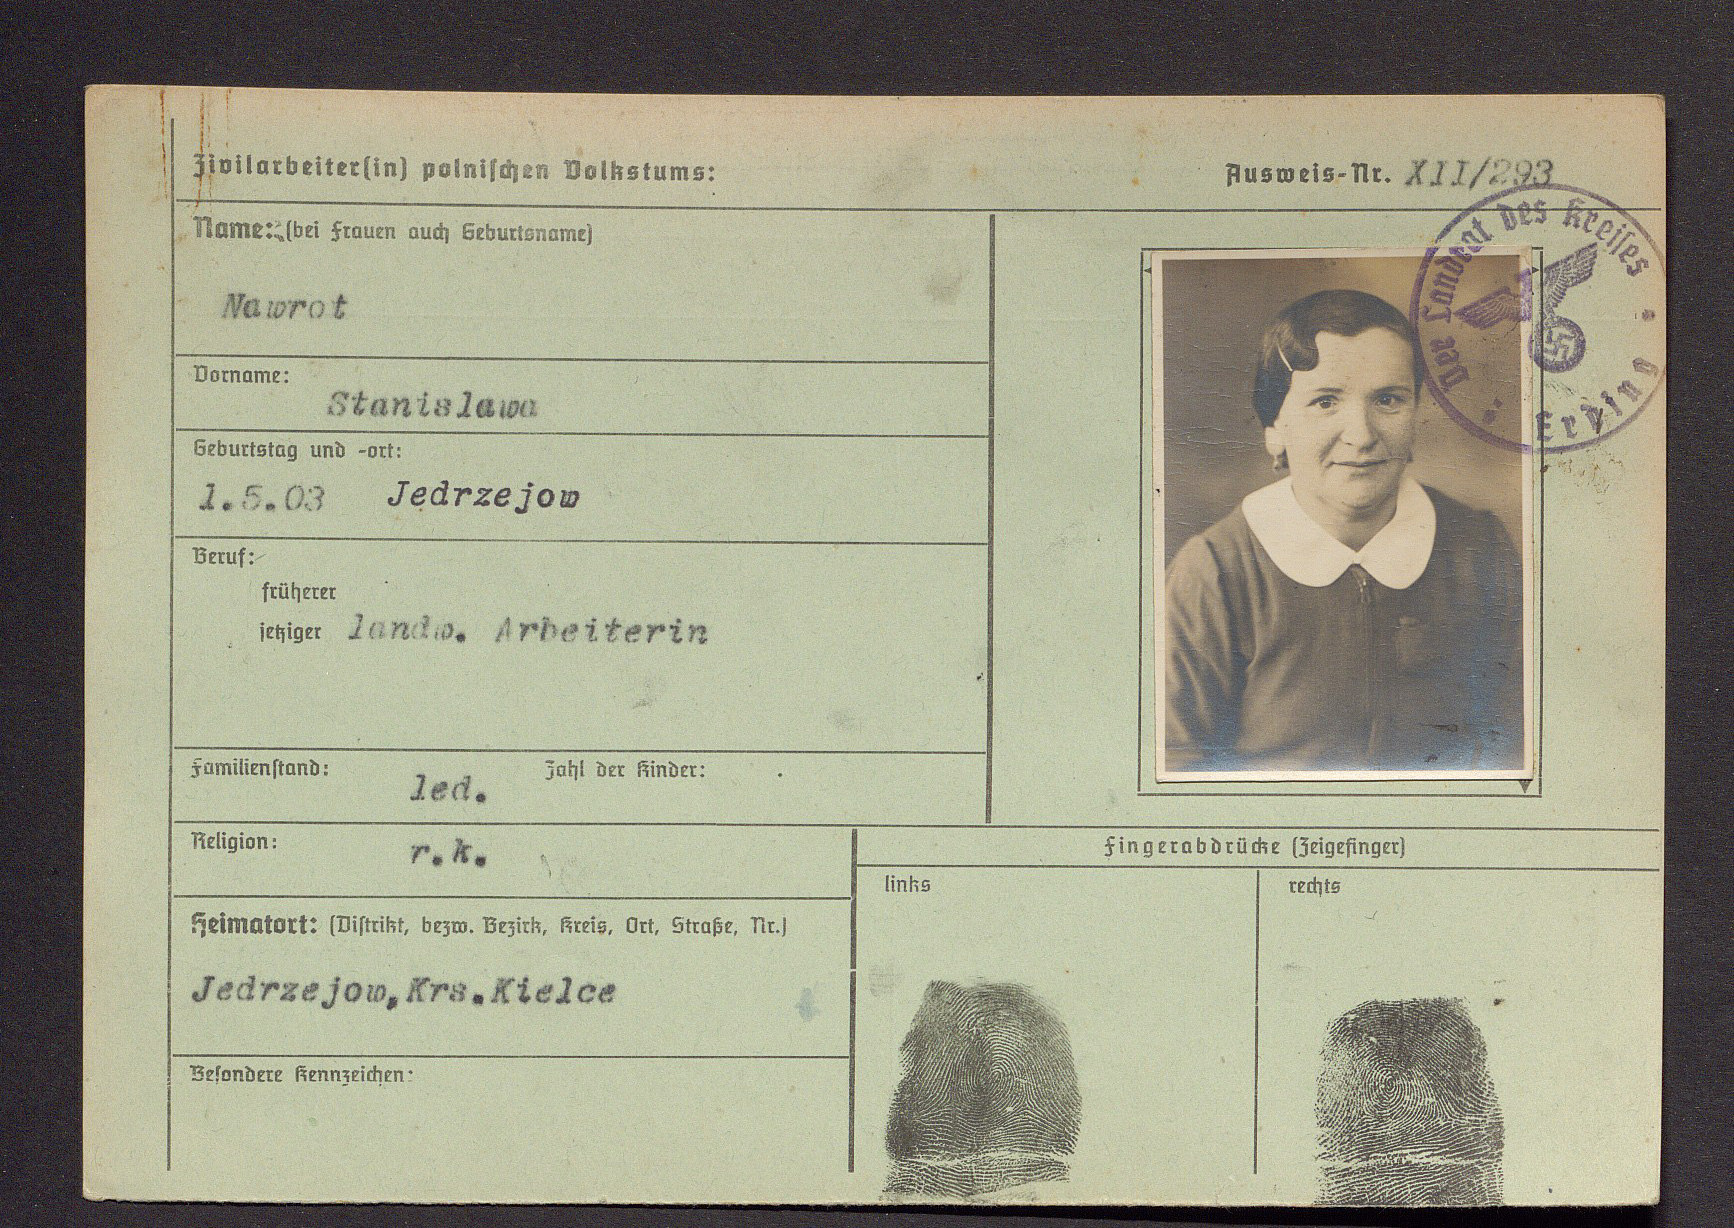 Zivilarbeiter(in) polnischen Volkstums:
Ausweis-Nr. XII/293
Name: (bei Frauen auch Geburtsname)
Nawrot
Vorname:
Stanislawa
Geburtstag und -ort:
1.5.03 Jedrzejow
Beruf:
früherer
jetziger landw. Arbeiterin
Familienstand: led. Zahl der Kinder:
Religion: r.k.
Heimatort: (Distrikt, bezw. Bezirk, Kreis, Ort, Straße, Nr.)
Jedrzejow, Krs. Kielce
Besondere Kennzeichen:
Der Landrat des Kreises
Erding
Fingerabdrücke (Zeigefinger)
links rechts